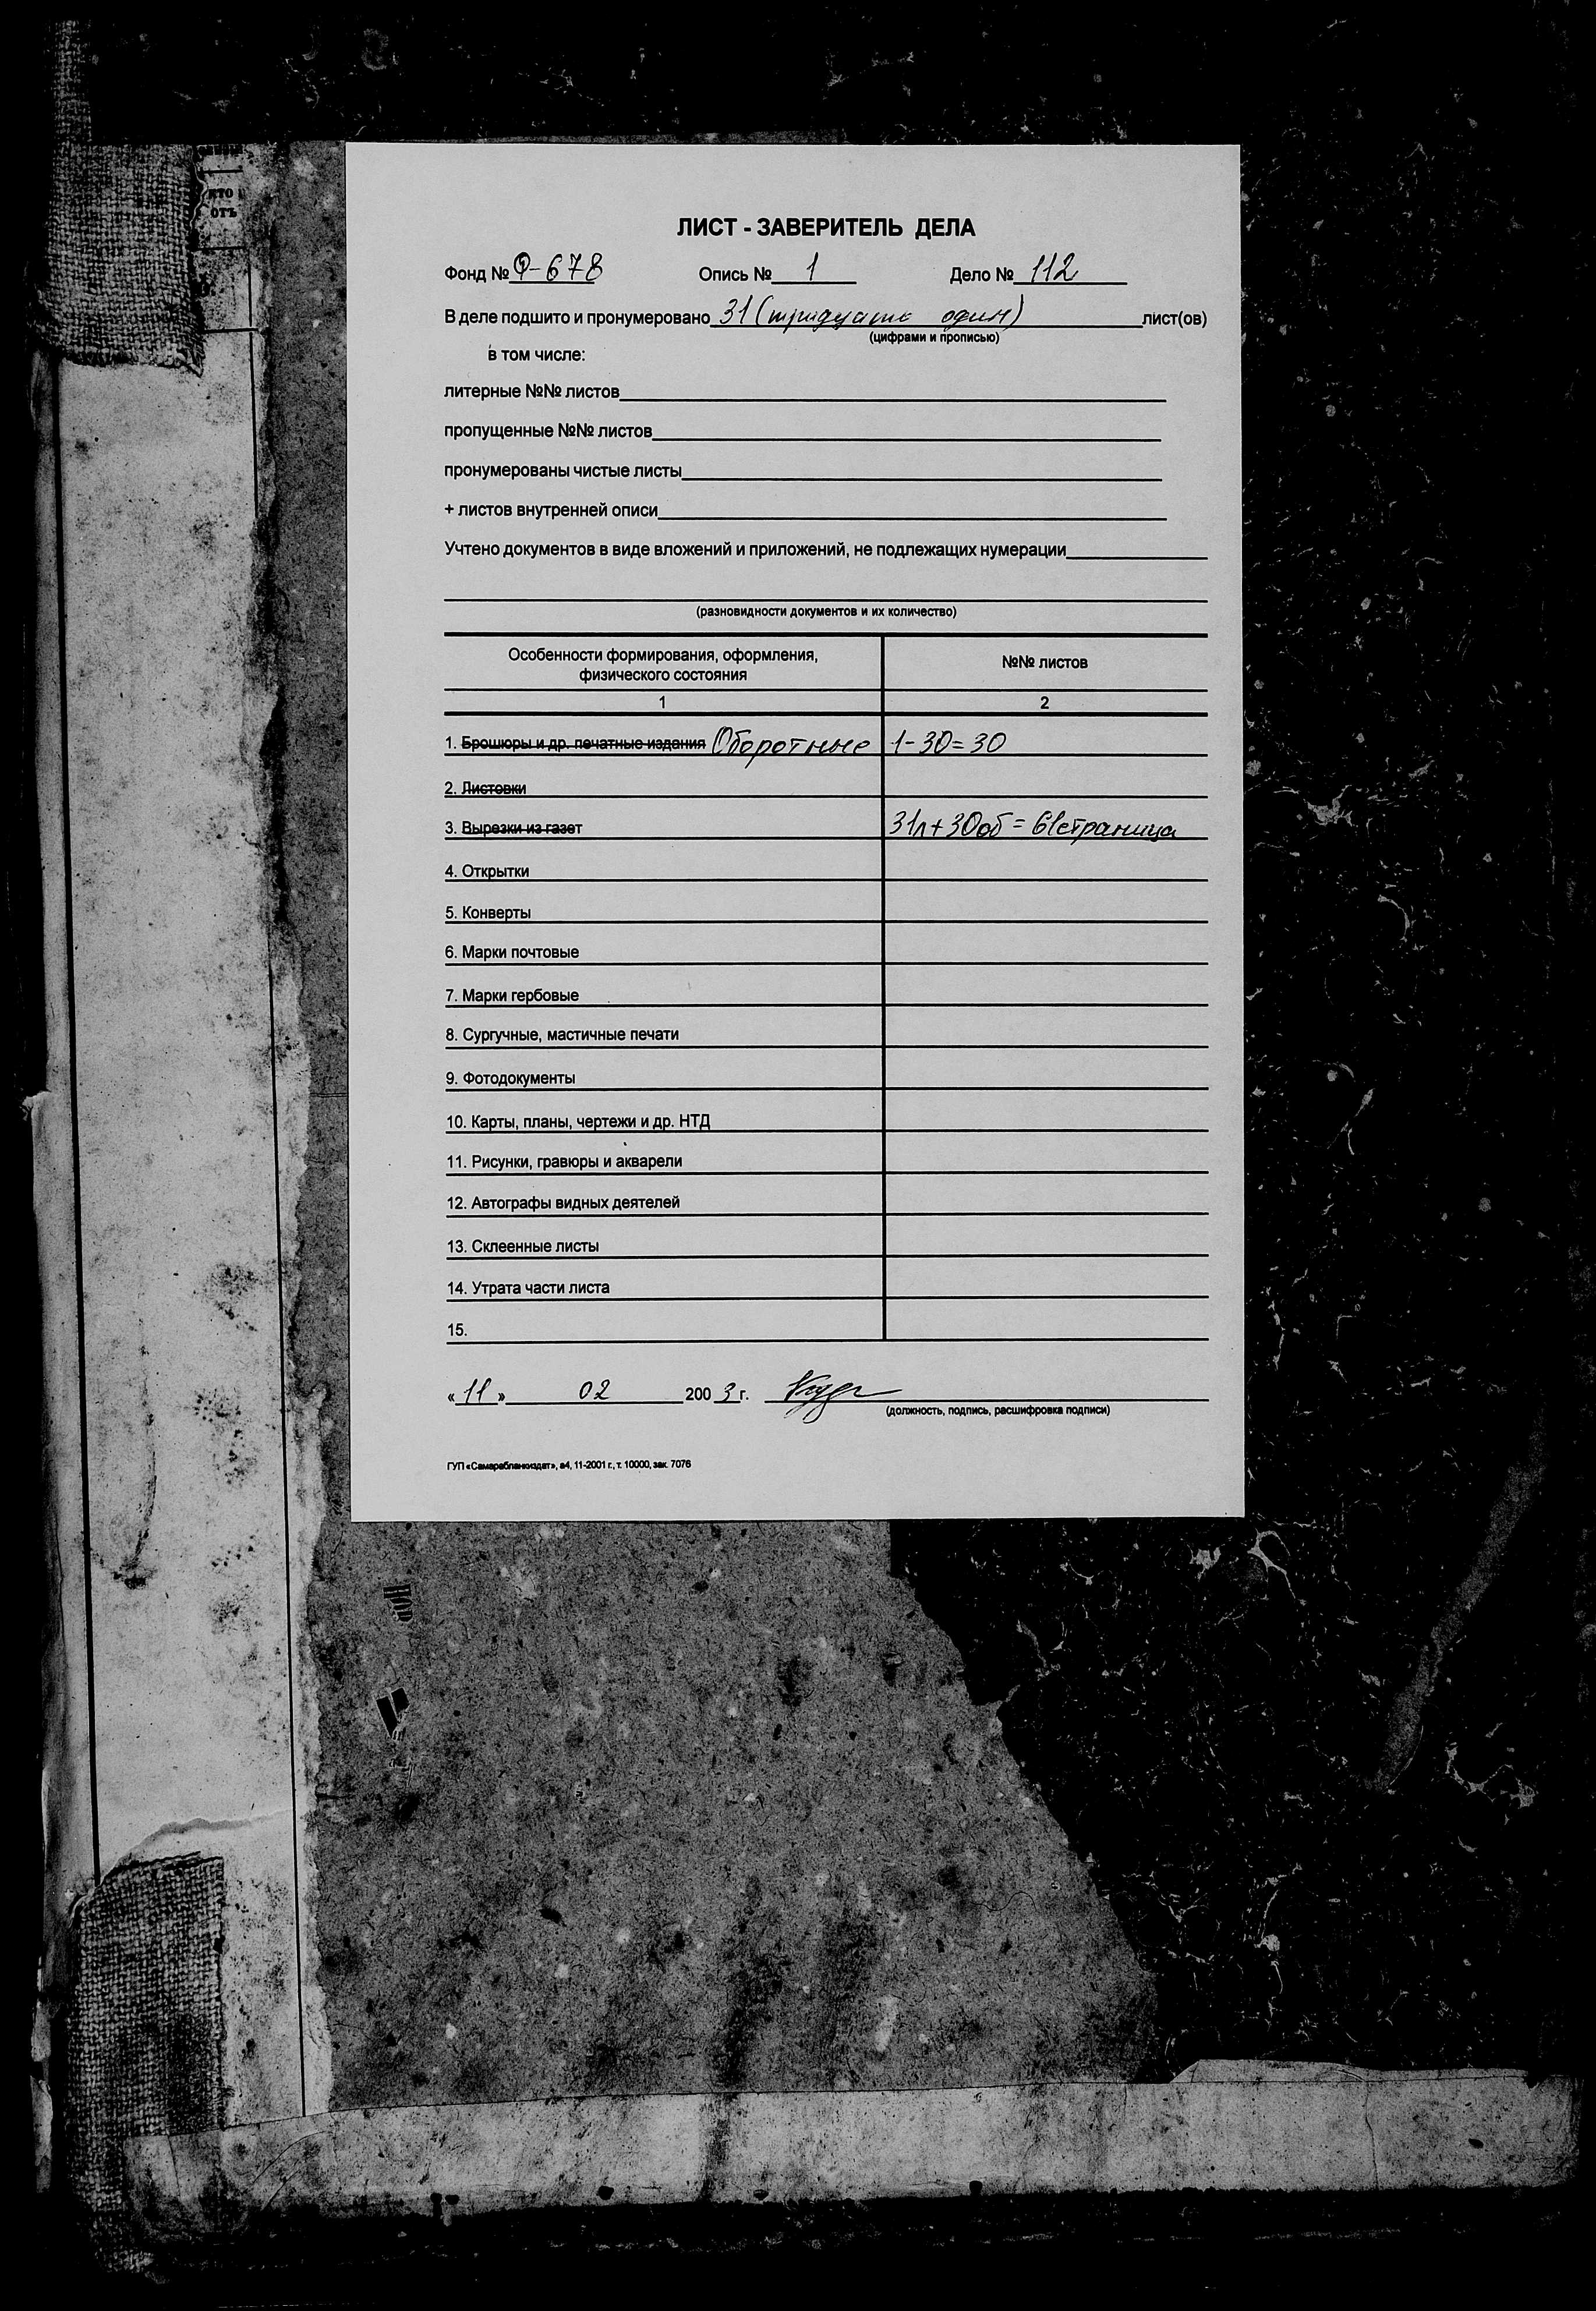 кто
отъ
ЛИСТ - ЗАВЕРИТЕЛЬ ДЕЛА
Фонд № Ф-678 Опись № 1 Дело № 112
В деле подшито и пронумеровано 31 (тридцать один) лист(ов)
(цифрами и прописью)
в том числе:
литерные №№ листов
пропущенные №№ листов
пронумерованы чистые листы
+ листов внутренней описи
Учтено документов в виде вложений и приложений, не подлежащих нумерации
(разновидности документов и их количество)
Особенности формирования, оформления, №№ листов
физического состояния
1 2
1. Брошюры и др. печатные издания Оборотные 1-30=30
2. Листовки
3. Вырезки из газет 31л+30об = 61страница
4. Открытки
5. Конверты
6. Марки почтовые
7. Марки гербовые
8. Сургучные, мастичные печати
9. Фотодокументы
10. Карты, планы, чертежи и др. НТД
11. Рисунки, гравюры и акварели
12. Автографы видных деятелей
13. Склеенные листы
14. Утрата части листа
15.
«11» 02 2003 г.
(должность, подпись, расшифровка подписи)
ГУП «Самарабланкиздат», а4, 11-2001 г., т. 10000, зак. 7076